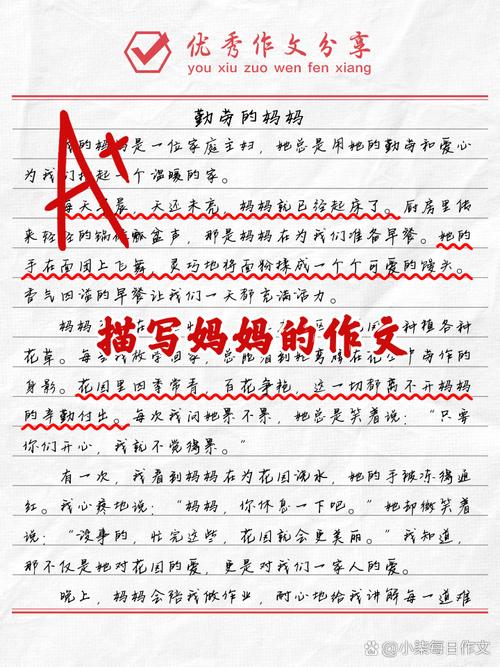 优秀作文分享
you xiu zuo wen fen xiang
勤劳的妈妈
A+
的妈妈是一位家庭主妇，她总是用她的勤劳和爱心
为我们起一个温暖的家。
每天晨，天还未亮，妈妈就已经起床了。厨房里传
来轻轻的锅碗瓢盆声，那是妈妈在为我们准备早餐。她的
手在面团上飞舞，灵巧地将面粉揉成一个个可爱的馒头。
香气四溢的早餐让我们一天都充满活力。
妈妈种植各种
描写妈妈的作文
花草。每放学回家，总能看到她中劳作的
身影。花园里四季常青，百花争艳，这一切都离不开妈妈
的辛勤付出。每次我问她累不累，她总是笑着说：“只要
你们开心，我就不觉得累。”
有一次，我看到妈妈在为花园浇水，她的手被冻得通
红。我心疼地说：“妈妈，你休息一下吧。”她却微笑着
说：“没事的，忙完这些，花园就会更美丽。”我知道，
那不仅是她对花园的爱，更是对我们一家人的爱。
晚上，妈妈会陪我做作业，耐心地给我讲解每一道难
小柒每日作文